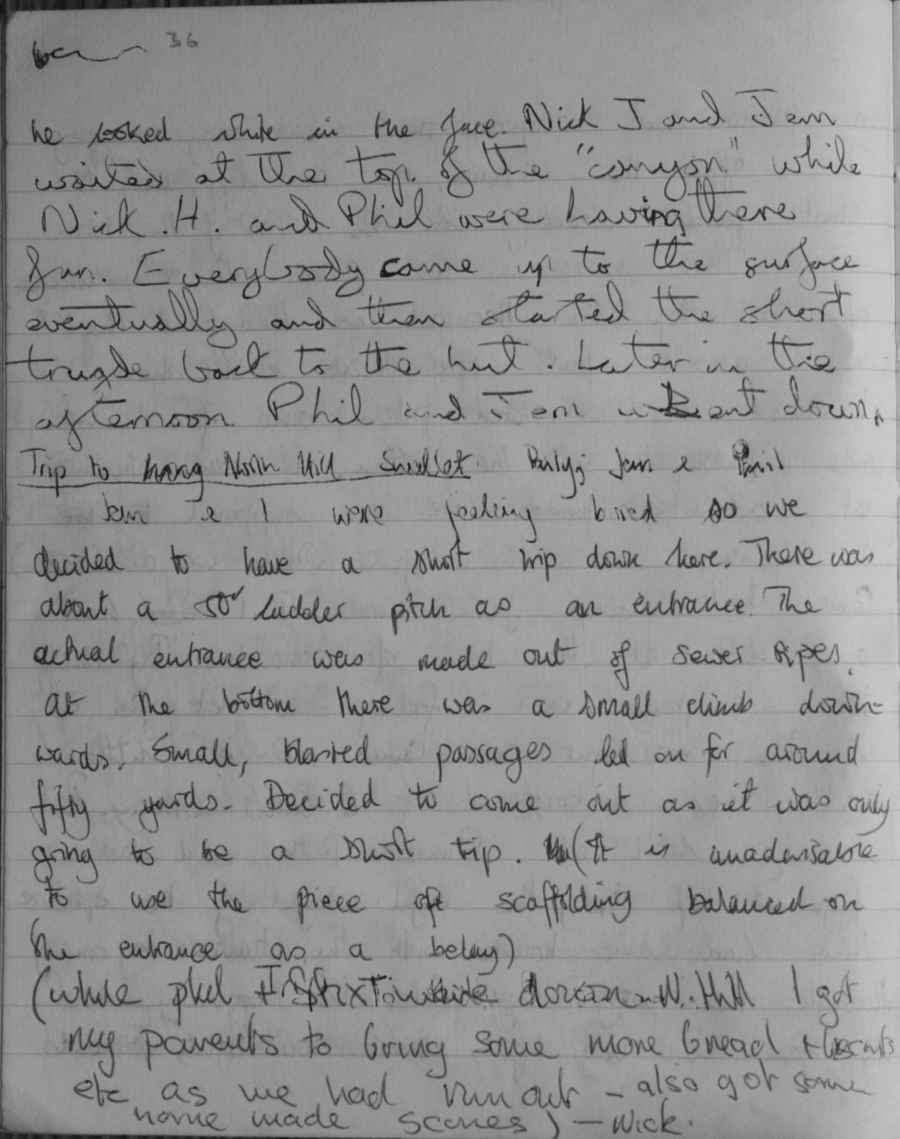 36
he looked white in the face. Nick J and Jem
waited at the top of the "canyon" while
Nick .H. and Phil were having there
fun. Everybody came up to the surface
eventually and then started the short
trugde back to the hut. Later in the
afternoon Phil and Jem went down.
Trip to North Hill Swallet. Party; Jem & Phil
Jem & I were feeling bored so we
decided to have a short trip down here. There was
about a 50' ladder pitch as an entrance. The
actual entrance was made out of sewer pipes.
at the bottom there was a small climb down-
wards. Small, blasted passages led on for around
fifty yards. Decided to come out as it was only
going to be a short tip. (It is unadvisable
to use the piece of scaffolding balanced on
the entrance as a belay)
(while phil down N. Hill I got
my parents to bring some more bread + biscuits
etc as we had run out - also got some
home made scones) - Nick.